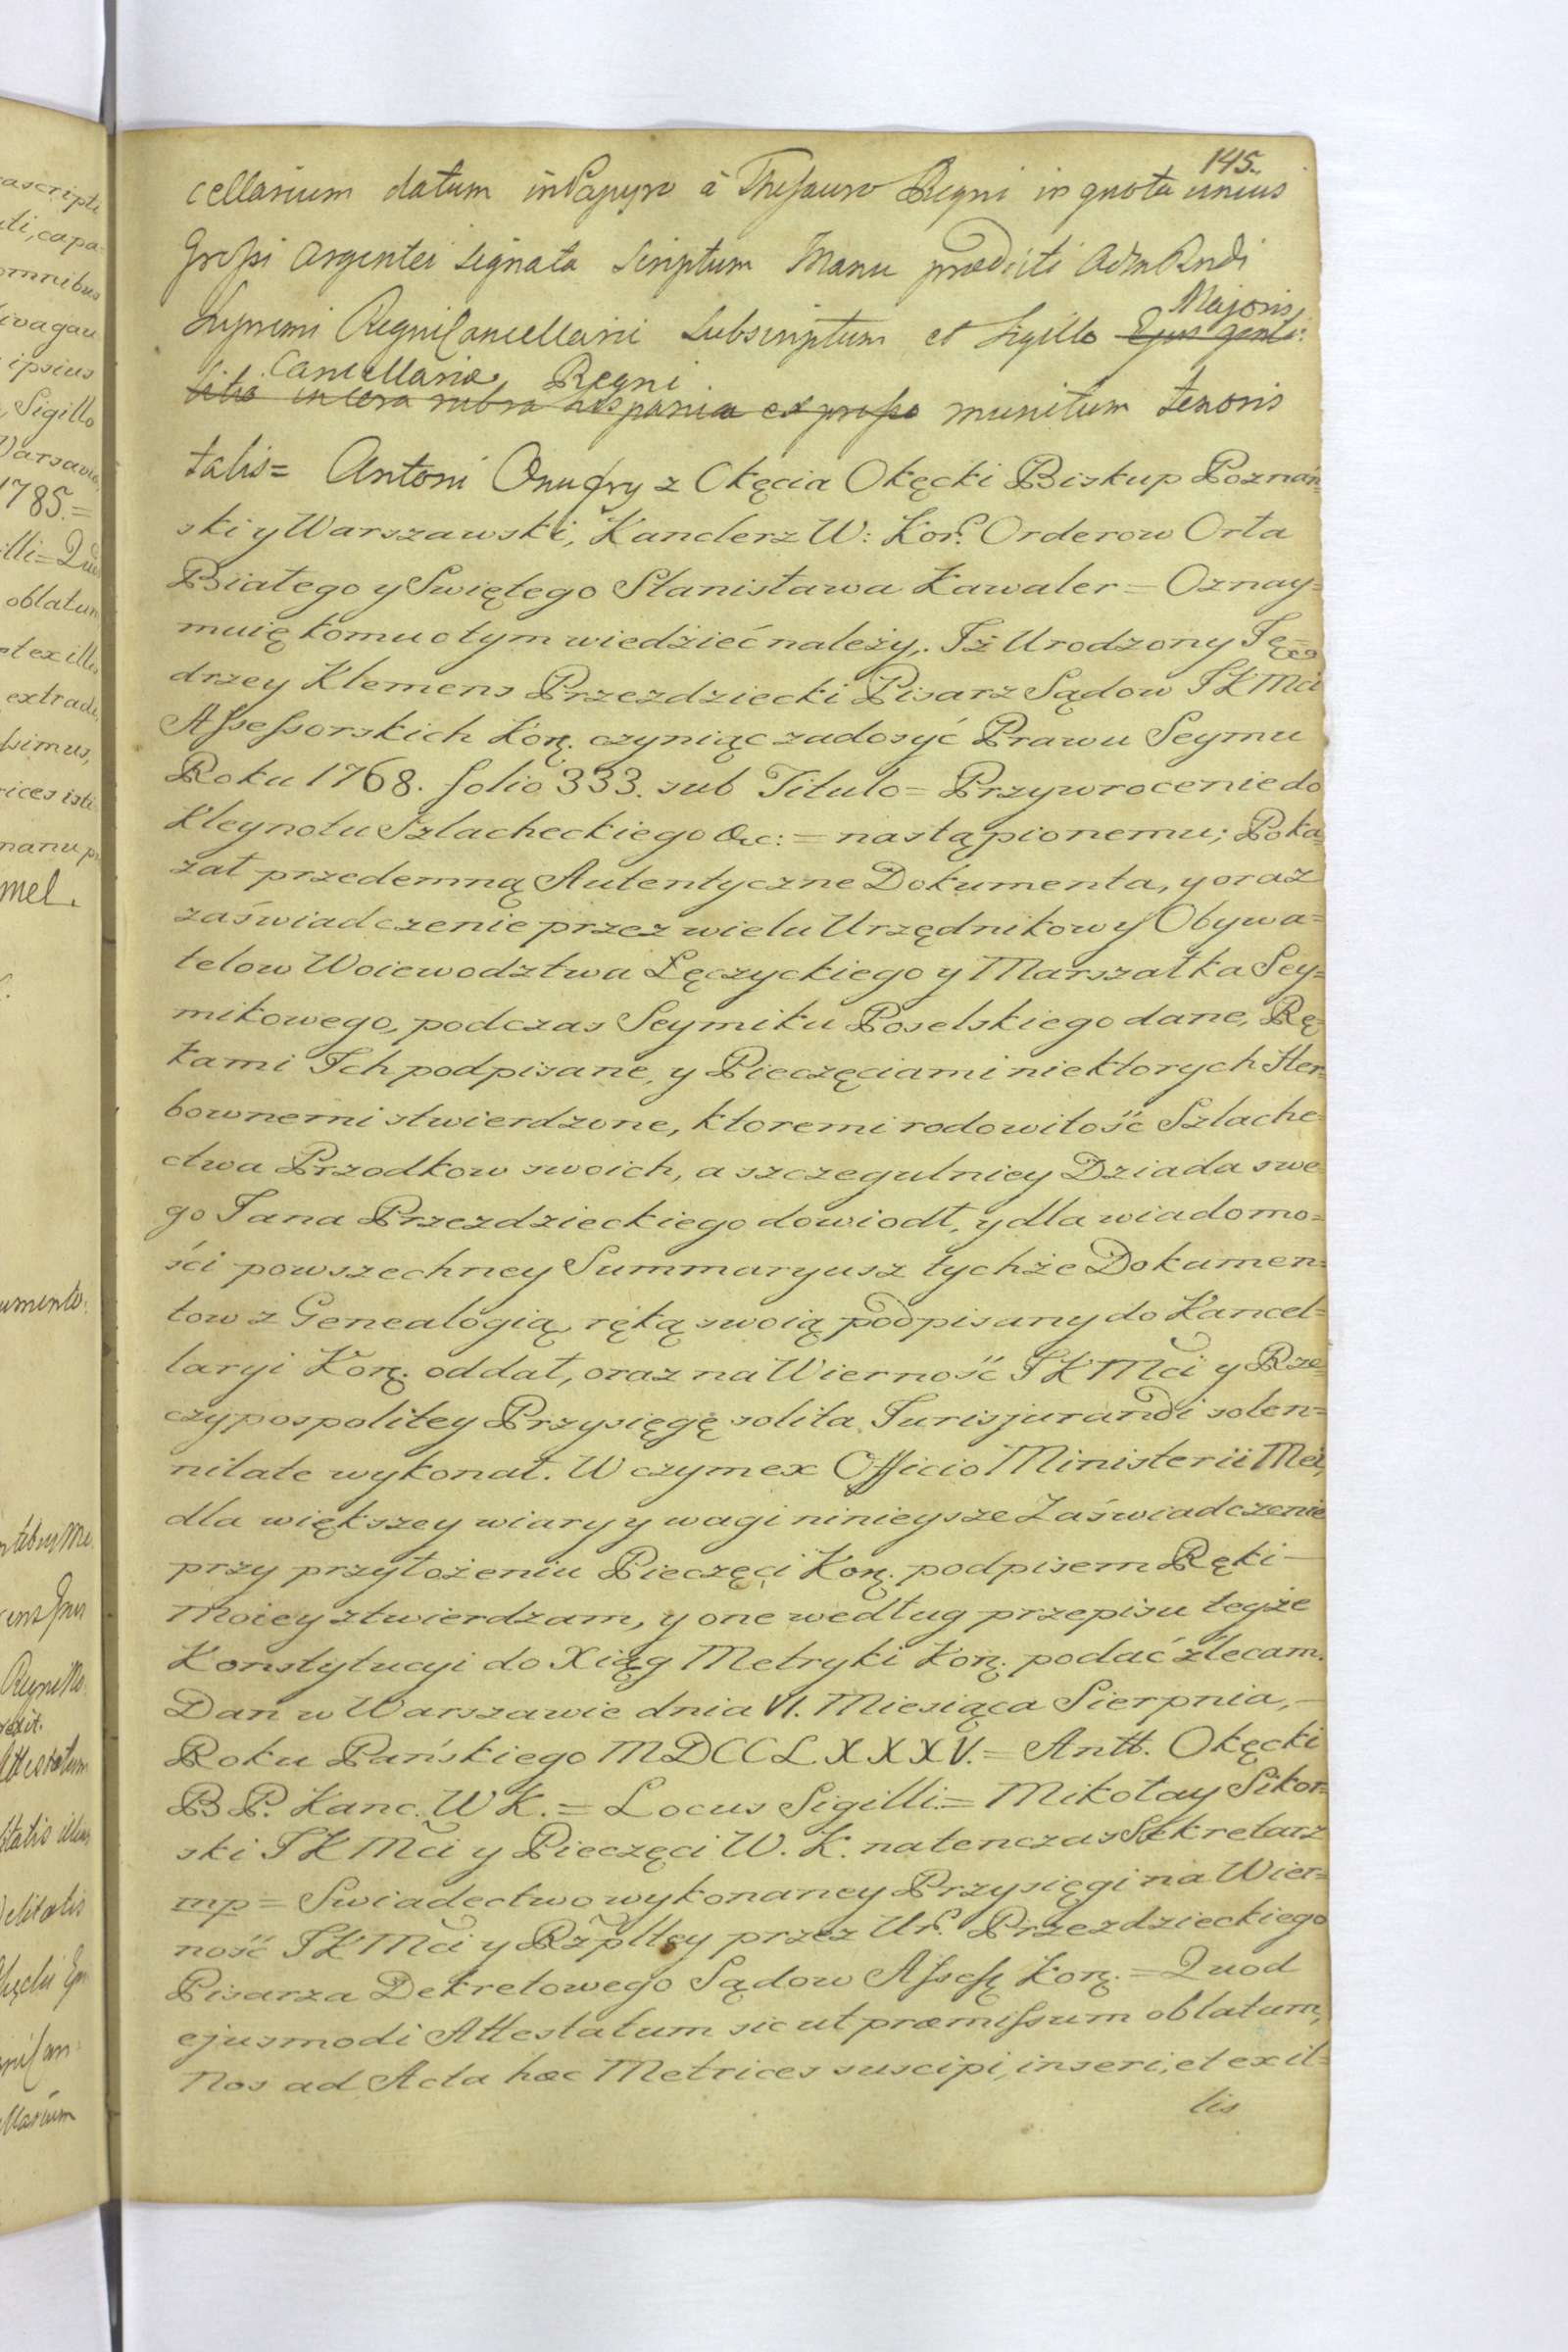 145.
cellarium datum in Papyro à Thesauro Regni in quota unius
Grossi Argentei signata Scriptum Manu prædicti Adm Rndi
Supremi Regni Cancellarii Subscriptum et Sigillo Ejus genti:
Majoris
Cancellariæ Regni
litio in cera rubra hispanica expresso munitum tenoris
talis= Antoni Onufry z Okęcia Okęcki Biskup Poznań=
ski y Warszawski, Kanclerz W: Kor. Orderow Orła
Białego y Swiętego Stanisława Kawaler = Oznay=
muię komu o tym wiedzieć należy. Iż Urodzony Ję=
drzey Klemens Przezdziecki Pisarz Sądow JKMci
Assessorskich Korẹ. czyniąc zadosyć Prawu Seymu
Roku 1768. folio 333. sub Titulo = Przywrocenie do
Kleynotu Szlacheckiego &c: = nastąpionemu; Poka=
zał przedemną Autentyczne Dokumenta, y oraz
zaświadczenie przez wielu Urzędnikow y Obywa=
telow Woiewodztwa Łęczyckiego y Marszałka Sey=
mikowego, podczas Seymiku Poselskiego dane, Rę=
kami Ich podpisane, y Pieczęciami niektorych Her=
bownemi stwierdzone, ktoremi rodowitość Szlache=
ctwa Przodkow swoich, a szczegulniey Dziada swe
go Jana Przezdzieckiego dowiodł, y dla wiadomo=
ści powszechney Summaryusz tychże Dokumen=
tow z Genealogią, ręką swoią podpisany do Kancel=
laryi Korẹ. oddał, oraz na Wierność JKMci y Rze=
czypospolitey Przysięgę solita Jurisjurandi solen=
nitate wykonał. W czym ex Officio Ministerii Mei,
dla większey wiary y wagi ninieysze Zaświadczenie
przy przyłożeniu Pieczęci Korẹ. podpisem Ręki —
Moiey ztwierdzam, y one według przepisu teyże
Konstytucyi do Xiąg Metryki Korẹ. podać zlecam.
Dan w Warszawie dnia VI. Miesiąca Sierpnia, —
Roku Pańskiego MDCCLXXXV. = Antt. Okęcki
B P. Kanc. W K. = Locus Sigilli = Mikołay Sikor=
ski JKMci y Pieczęci W. K. natenczas Sekretarz
mp = Swiadectwo wykonaney Przysięgi na Wier=
ność JKMci y Rzpltey przez Ur. Przezdzieckiego
Pisarza Dekretowego Sądow Assess Korẹ. = Quod
ejusmodi Attestatum sic ut præmissum oblatum,
Nos ad Acta hæc Metrices suscipi, inseri, et ex il=
lis